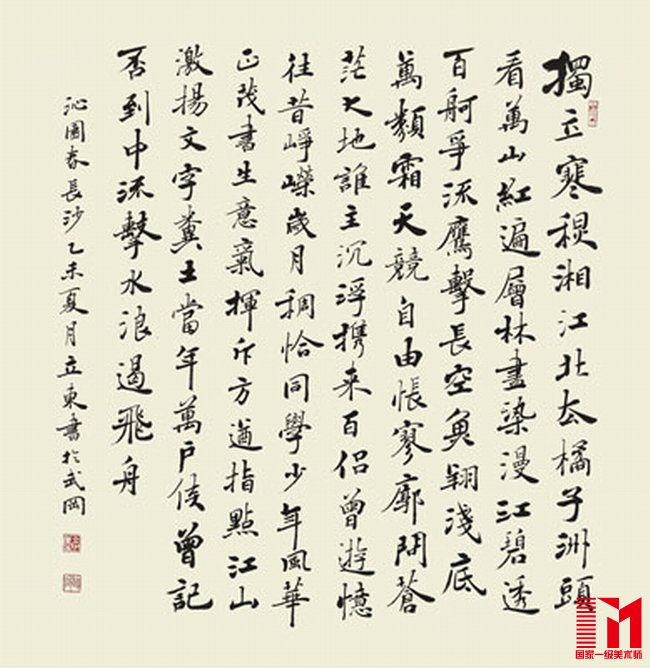 獨立寒秋湘江北去橘子洲頭
看萬山紅遍層林盡染漫江碧透
百舸爭流鷹擊長空魚翔淺底
萬類霜天競自由悵寥廓問蒼
茫大地誰主沉浮携来百侣曾遊憶
往昔崢嶸歲月稠恰同學少年風華
正茂書生意氣揮斥方遒指點江山
激揚文字糞土當年萬戶侯曾記
否到中流擊水浪遏飛舟
沁園春長沙乙未夏月立東書於武岡
国家一级美术师